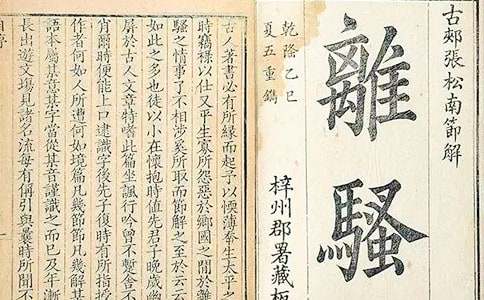 古郟張松南節解
離騷
乾隆乙巳
夏五重鐫
梓州郡署藏板
古著書必有所緣而起予以愞薄忝生太平之
時竊祿以仕又平生寡所怨惡於鄉國之間於離
騷之情事了不相涉奚所取而節解之至於云云
如此之多也徒以小在懷抱時值先君子晚歲幽
屏於古人文章特嗜此篇坐諷行吟曾不蹔舍不
肖爾時便能上口逮識字後先子復時有所指授
作者何如人所遭何如境篇凡幾節節凡幾解某
語本屬某意某字當從某音謹識之而已及年漸
長出遊文塲見諸名流每有偁引與曩時所聞不